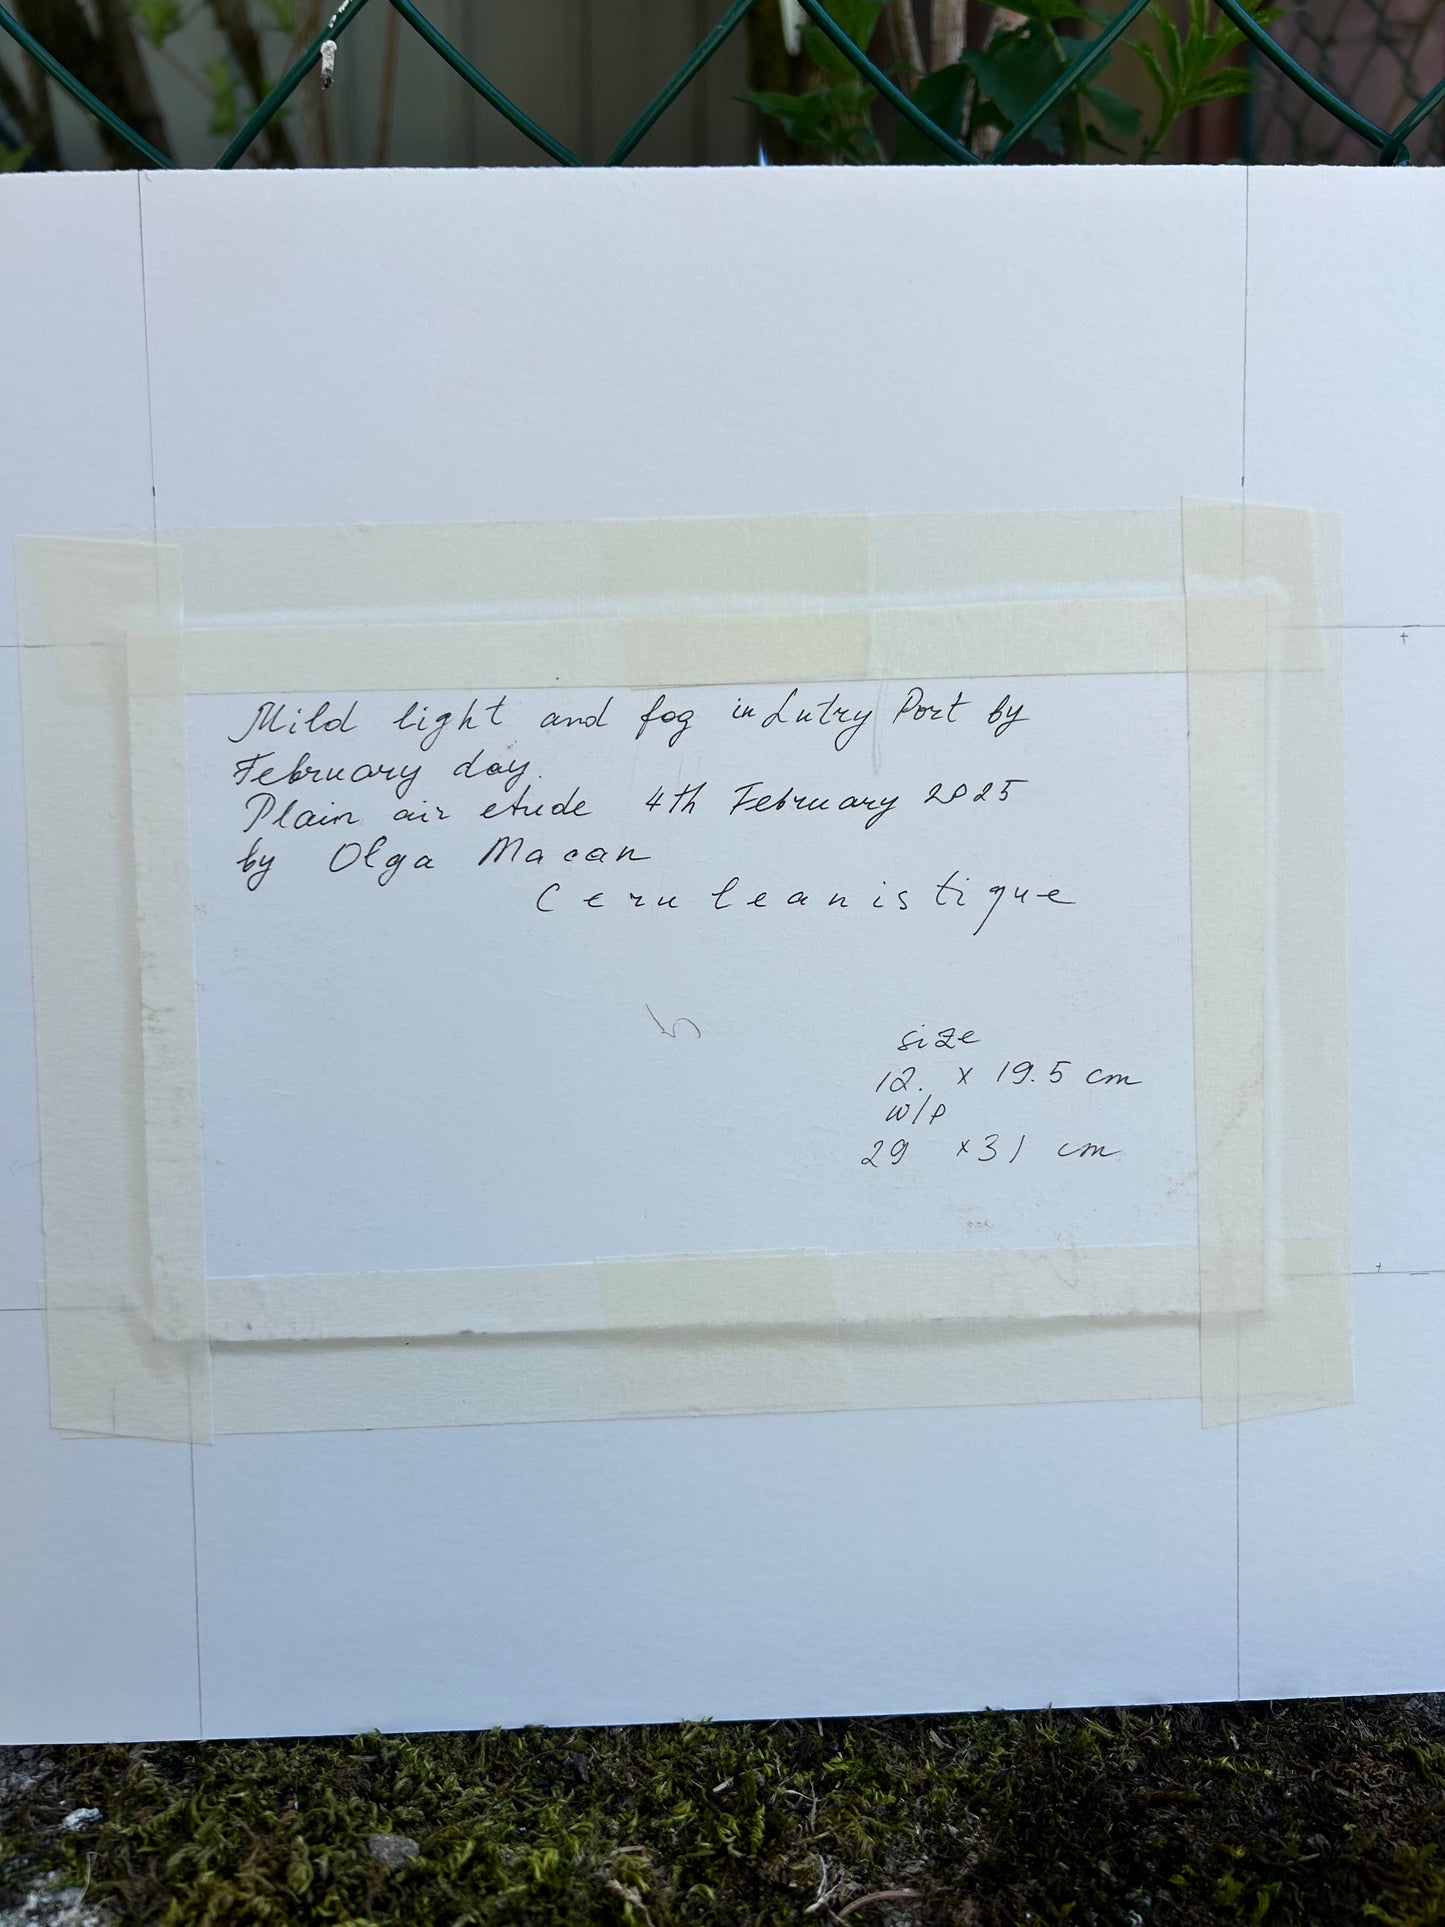 Mild light and fog in Lutry Port by
February day.
Plain air etude 4th February 2025
by Olga Macan
Ceruleanistique
size
12. x 19.5 cm
w/p
29 x 31 cm